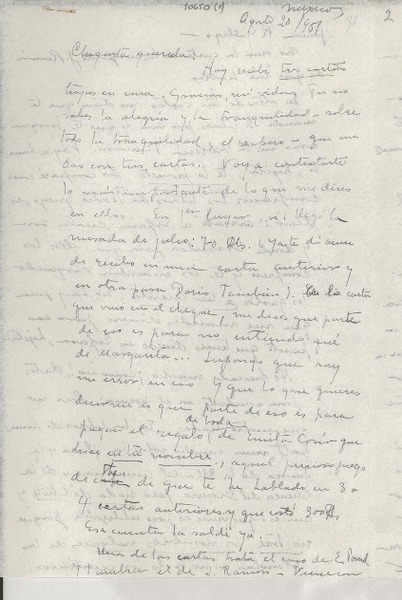 10650 (1)
México
Agosto 20/951
2
Chiquita querida:
Hoy recibí tres cartas
tuyas en una. Gracias, mi vida. Tu no
sabes la alegría y la tranquilidad – sobre
todo la tranquilidad, el respiro – que me
das con tres cartas. Voy a contestarte
lo más importante de lo que me dices
en ellas. En 1er lugar, si: llegó la
mesada de julio: 70 Dls. Ya te di acuse
de recibo en una carta anterior y
en otra para Doris también). En la carta
que vino en el cheque, me dices que parte
de eso es para no entiendo qué
de Margarita... Supongo que hay
un error en eso y que lo que quieres
decirme es que parte de eso es para
pagar el regalo de boda de Emilia Cosío que
dices en tu nombre, aquel precioso juego
de té de que te he hablado en 3 o
4 cartas anteriores y que costó 300$.
Esa cuenta la saldé ya.
Una de las cartas trata el caso de E. Pound
y ambas el de J. Ramón